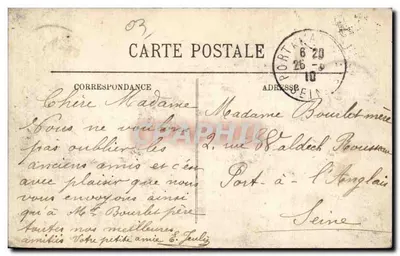 CARTE POSTALE
CORRESPONDANCE
ADRESSE
Chère Madame
Nous ne voulons
pas oublier les
anciens amis et c'est
avec plaisir que nous
vous envoyons ainsi
qu'à Mr Bourlet père
toutes nos meilleures
amitiés Votre petite amie E.
Madame Bourlet mère
2, rue Waldeck Rousseau
Port-à-l'Anglais
Seine
6 20
10